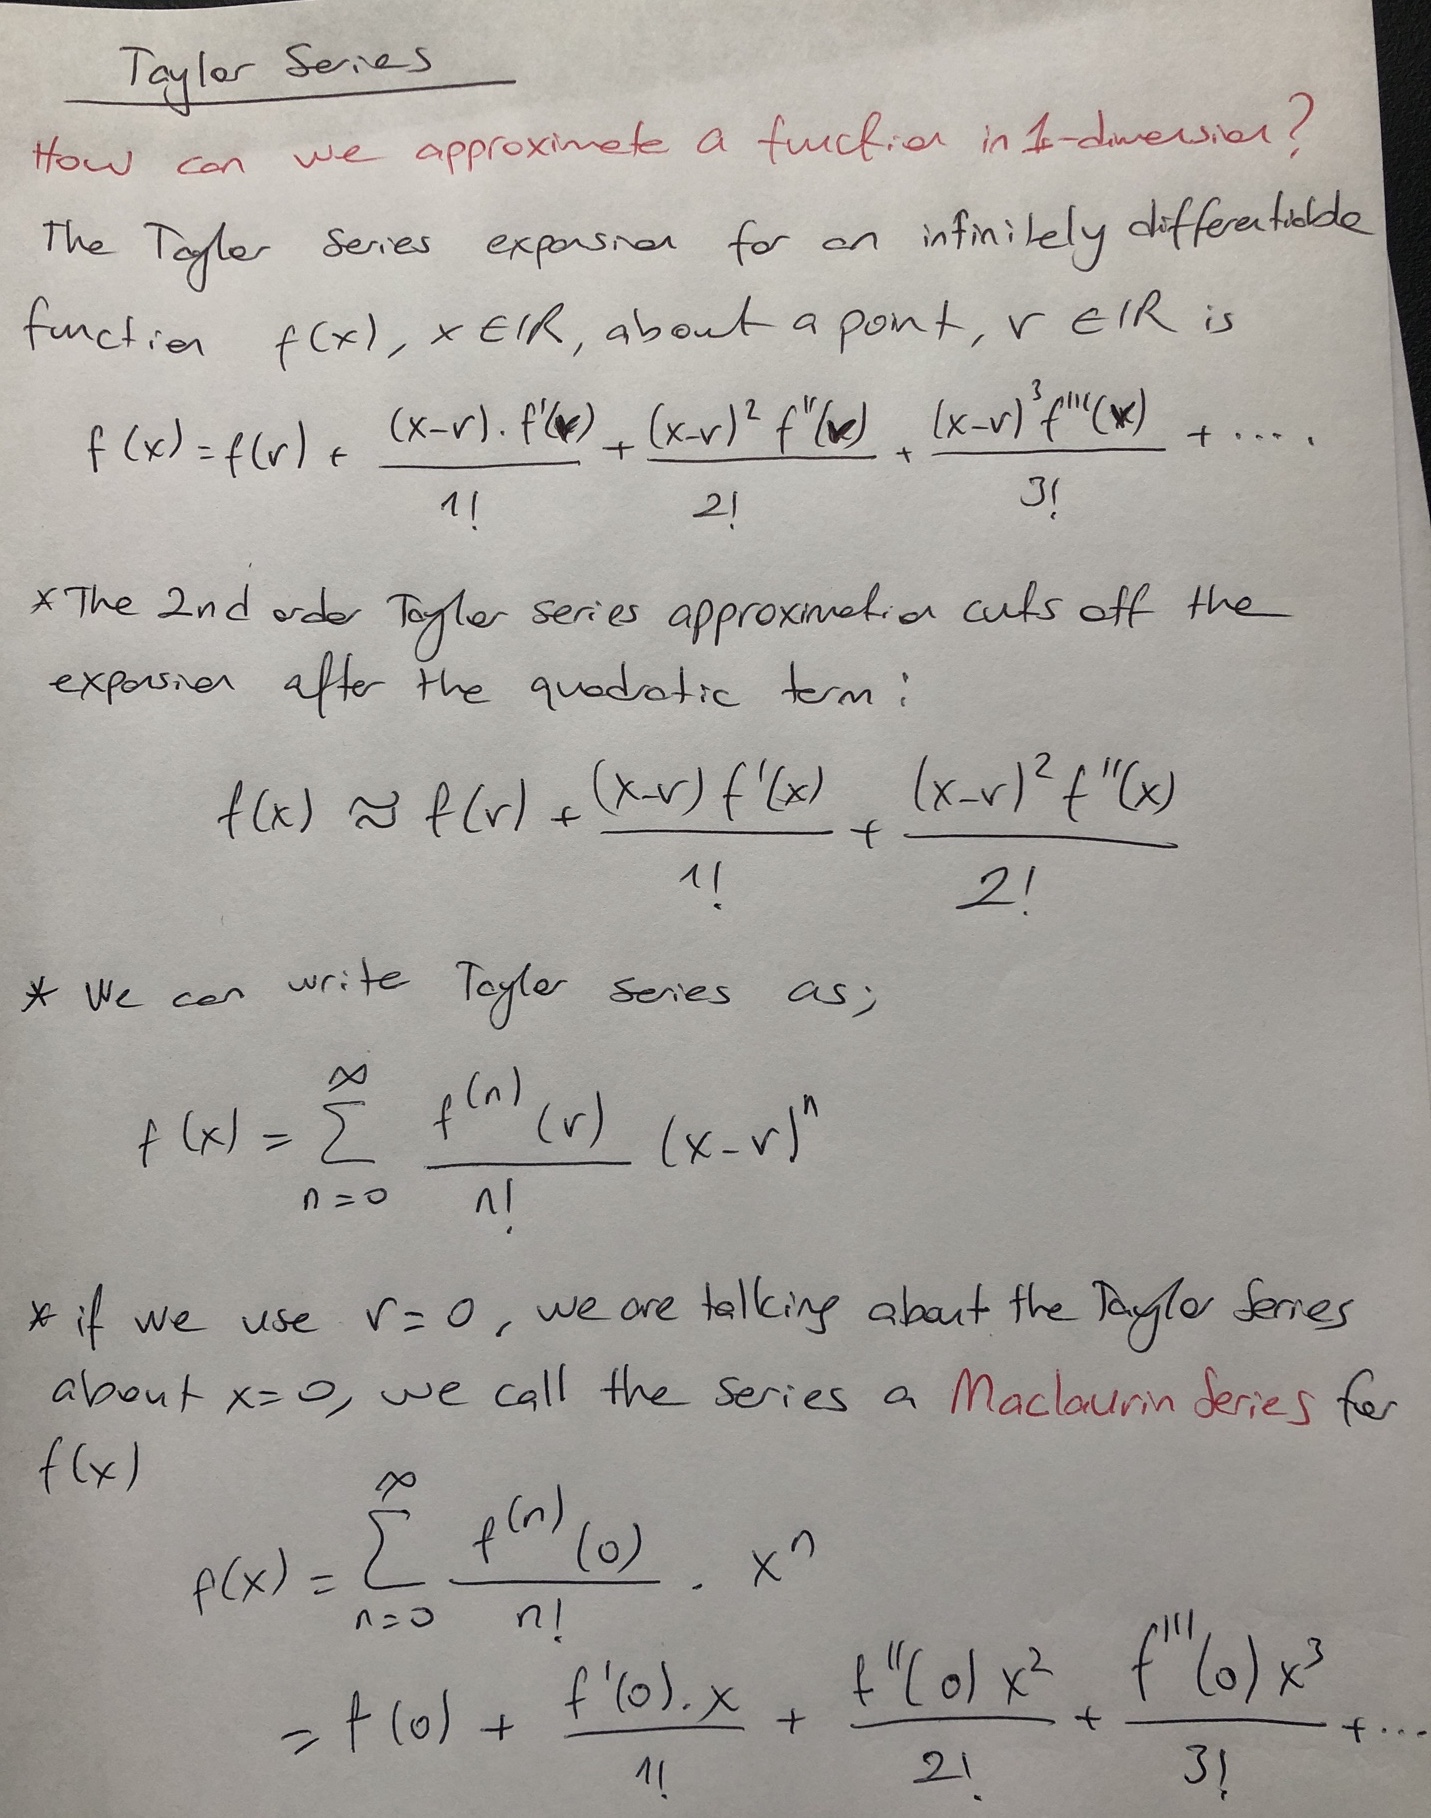 Taylor Series
How can we approximate a function in 1-dimension?
The Taylor Series expansion for an infinitely differentiable
function f(x), x ∈ ℝ, about a point, r ∈ ℝ is
f(x) = f(r) + (x-r). f'(r)/1! + (x-r)² f''(r)/2! + (x-r)³ f'''(r)/3! + ....
* The 2nd order Taylor series approximation cuts off the
expansion after the quadratic term:
f(x) ≈ f(r) + (x-r) f'(x)/1! + (x-r)² f''(x)/2!
* We can write Taylor series as;
f(x) = ∑_{n=0}^{∞} f⁽ⁿ⁾(r)/n! (x-r)ⁿ
* if we use r=0, we are talking about the Taylor Series
about x=0, we call the series a Maclaurin Series for
f(x)
f(x) = ∑_{n=0}^{∞} f⁽ⁿ⁾(0)/n! . xⁿ
= f(0) + f'(0).x/1! + f''(0) x²/2! + f'''(0) x³/3! + ...